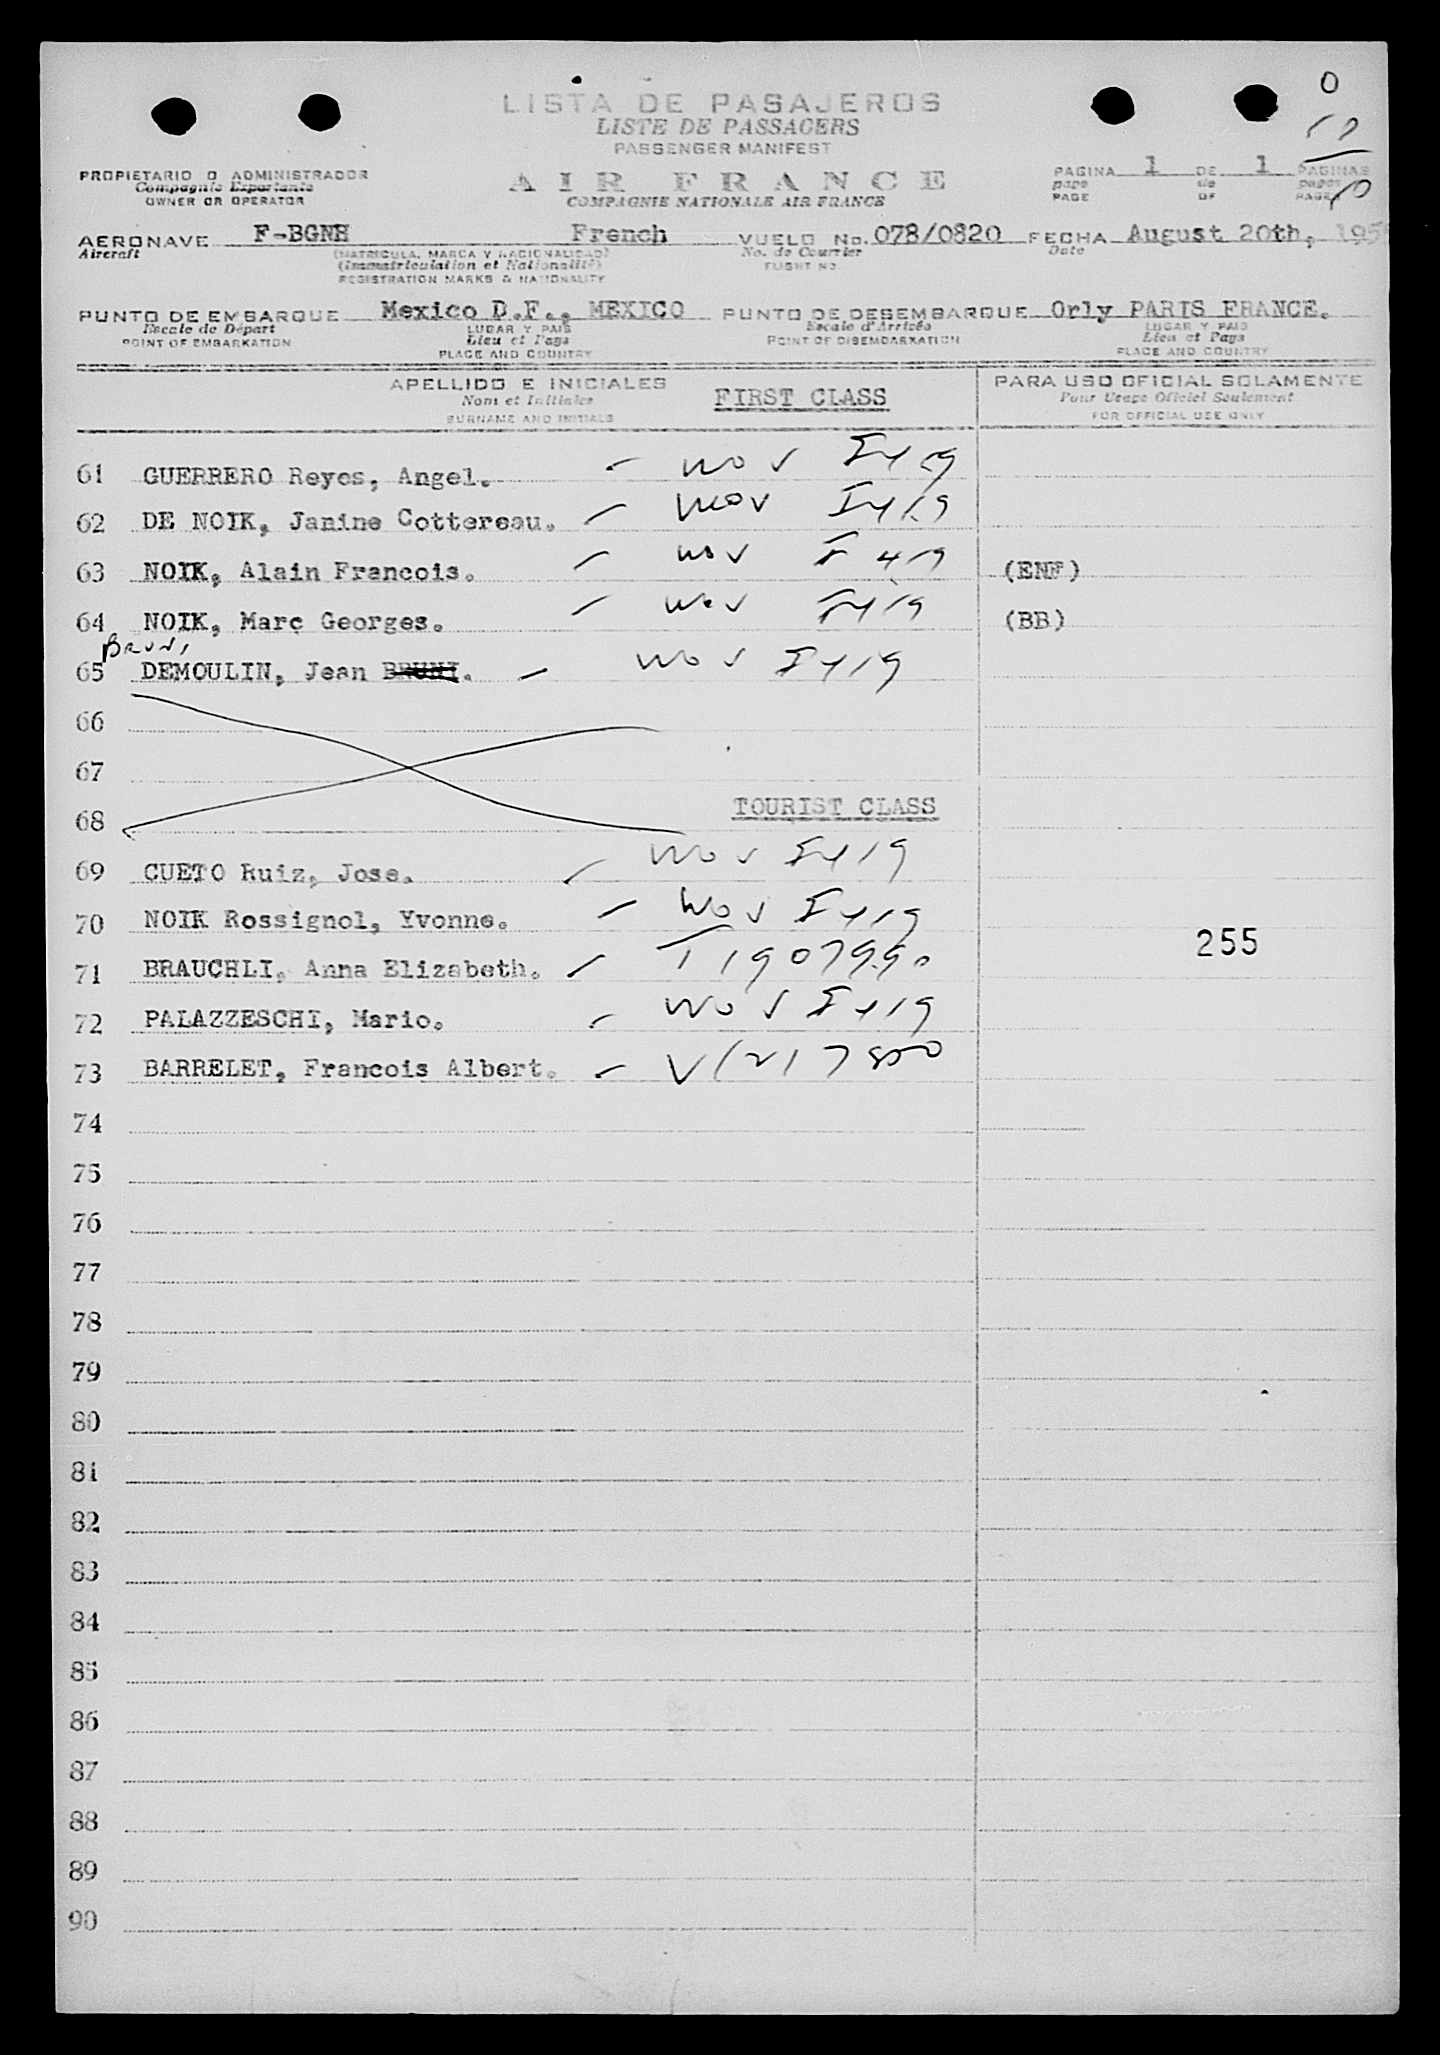 0
LISTA DE PASAJEROS
LISTE DE PASSAGERS
PASSENGER MANIFEST
PROPIETARIO O ADMINISTRADOR
Compagnie Exportante
OWNER OR OPERATOR
AIR FRANCE
COMPAGNIE NATIONALE AIR FRANCE
PAGINA 1 DE 1 PAGINAS
page de pages
PAGE OF PAGES
AERONAVE F-BGNH French VUELO No. 078/0820 FECHA August 20th, 195
Aircraft (MATRICULA, MARCA Y NACIONALIDAD) No. de Courrier Date
(Immatriculation et Nationalité) FLIGHT NO.
REGISTRATION MARKS & NATIONALITY
PUNTO DE EMBARQUE Mexico D.F., MEXICO PUNTO DE DESEMBARQUE Orly PARIS FRANCE.
Escale de Départ LUGAR Y PAIS Escale d'Arrivée LUGAR Y PAIS
POINT OF EMBARKATION Lieu et Pays POINT OF DISEMBARKATION Lieu et Pays
PLACE AND COUNTRY PLACE AND COUNTRY
APELLIDO E INICIALES FIRST CLASS PARA USO OFICIAL SOLAMENTE
Nom et Initiales Pour Usage Officiel Seulement
SURNAME AND INITIALS FOR OFFICIAL USE ONLY
61 GUERRERO Reyes, Angel.
62 DE NOIK, Janine Cottereau.
63 NOIK, Alain Francois. (ENF)
64 NOIK, Marc Georges. (BB)
BRUNI
65 DEMOULIN, Jean BRUNI.
66
67
TOURIST CLASS
68
69 CUETO Ruiz, Jose.
70 NOIK Rossignol, Yvonne.
255
71 BRAUCHLI, Anna Elizabeth.
72 PALAZZESCHI, Mario.
73 BARRELET, Francois Albert.
74
75
76
77
78
79
80
81
82
83
84
85
86
87
88
89
90